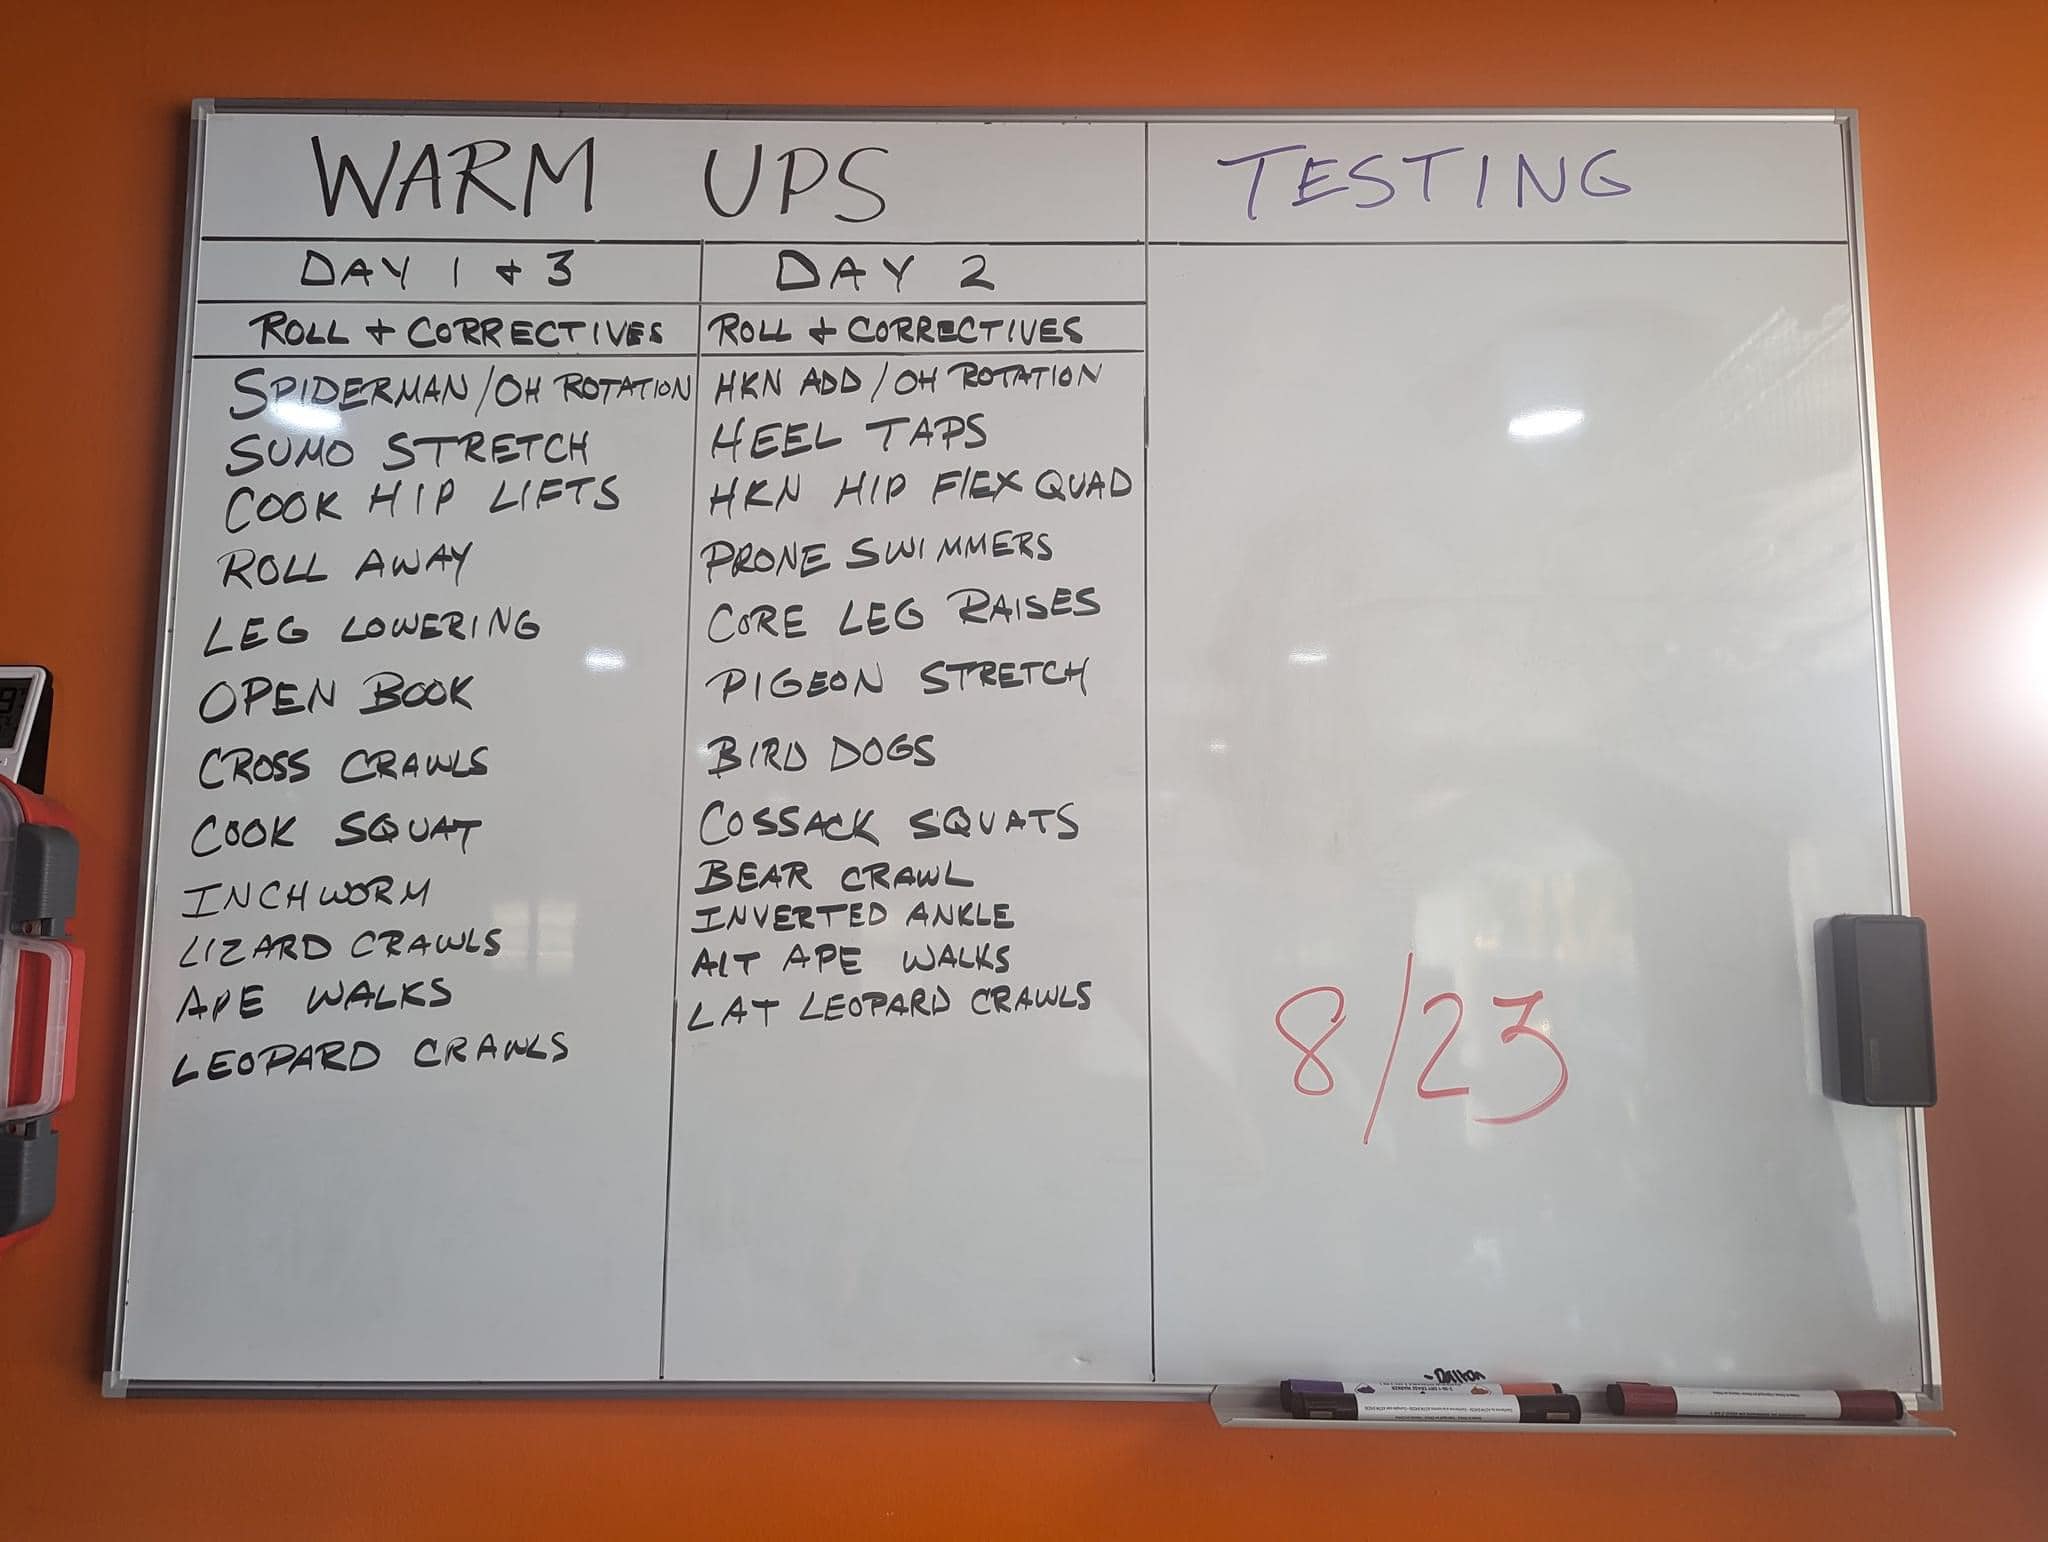 WARM UPS
DAY 1 + 3
ROLL + CORRECTIVES
SPIDERMAN/OH ROTATION
SUMO STRETCH
COOK HIP LIFTS
ROLL AWAY
LEG LOWERING
OPEN BOOK
CROSS CRAWLS
COOK SQUAT
INCHWORM
LIZARD CRAWLS
APE WALKS
LEOPARD CRAWLS
DAY 2
ROLL + CORRECTIVES
HKN ADD/OH ROTATION
HEEL TAPS
HKN HIP FLEX QUAD
PRONE SWIMMERS
CORE LEG RAISES
PIGEON STRETCH
BIRD DOGS
COSSACK SQUATS
BEAR CRAWL
INVERTED ANKLE
ALT APE WALKS
LAT LEOPARD CRAWLS
TESTING
8/23
-Dalton